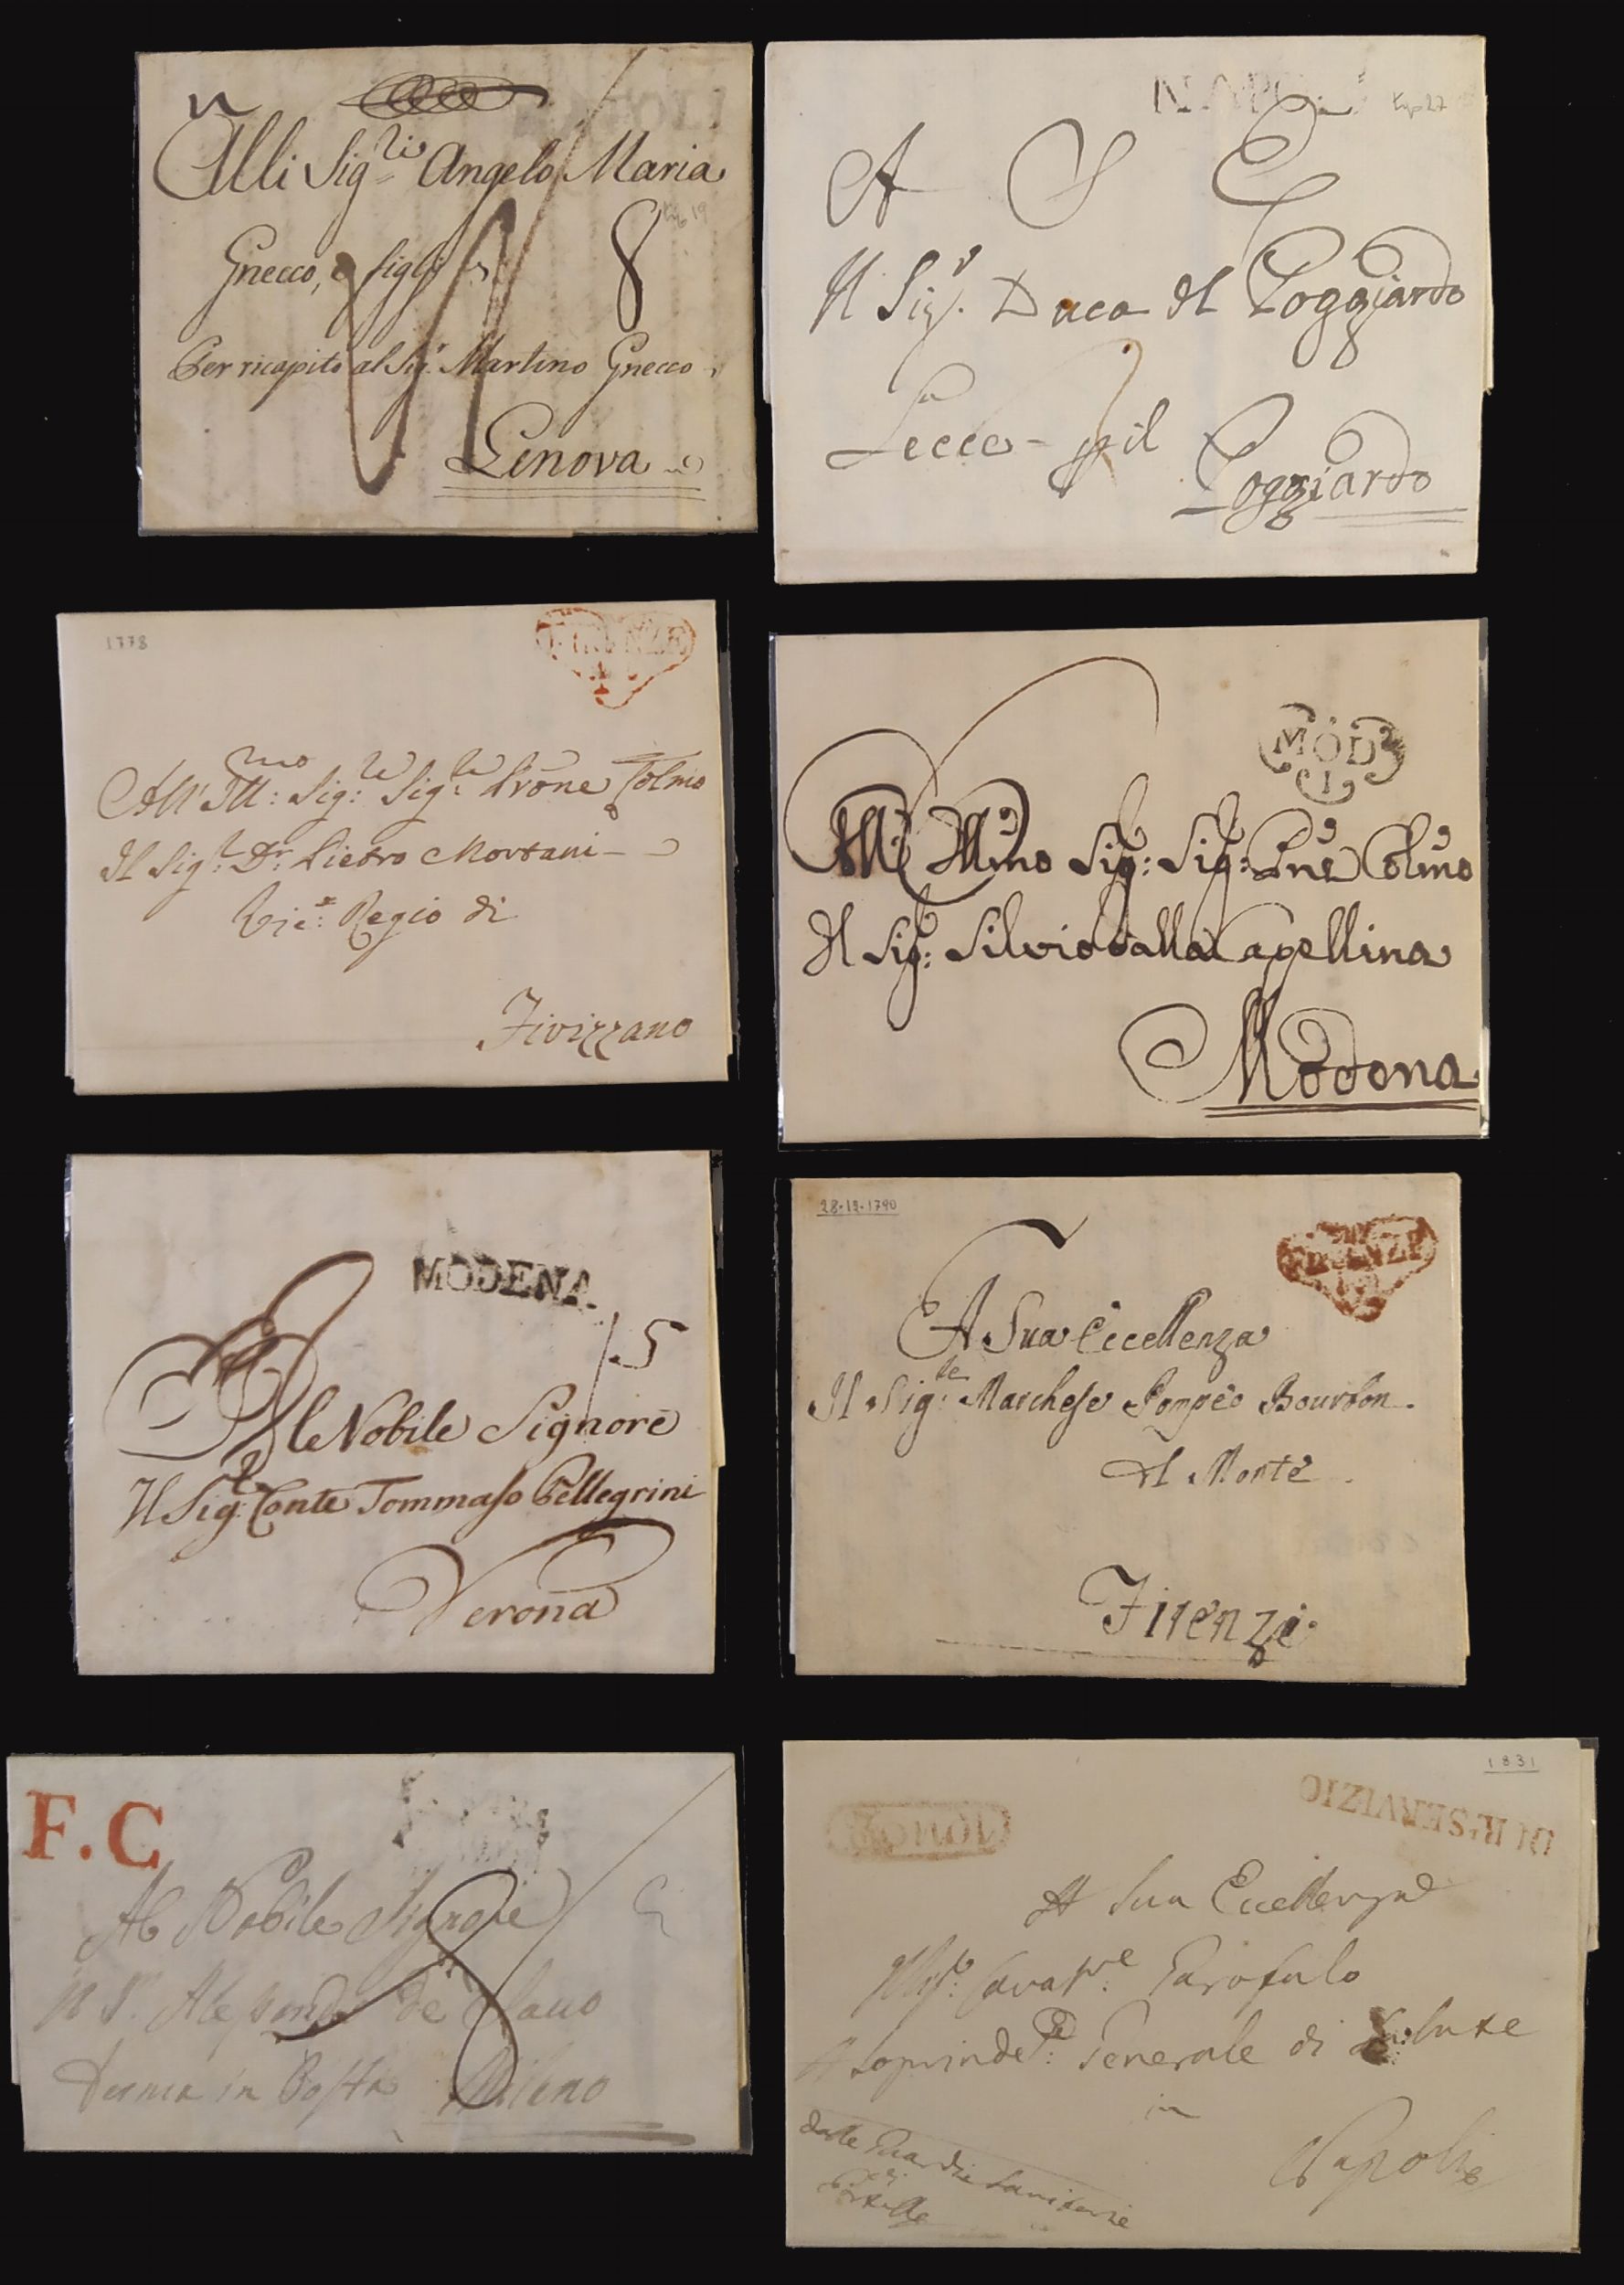 Alli Sig.li Angelo Maria
Gnecco, e figli
8
Per ricapito al Sig.r Martino Gnecco
Genova
NAPOLI
A S E
Il Sig.r Duca di Poggiardo
Lecce - p il
Poggiardo
1778
FIRENZE
All' Ill:mo Sig:re Sig:re P̃rone Colmo
Il Sig:r D:r Pietro Mortani
Vic:o Regio di
Fivizzano
MOD
1
All Illmo Sig: Sig: Pne Colmo
Il Sig: Silvio dalla Capellina
Modona
MODENA
15
Al Nobile Signore
Il Sig.r Conte Tommaso Pellegrini
Verona
28-12-1790
FIRENZE
A Sua Eccellenza
Il Sig:re Marchese Pompeo Bourbon
del Monte
Firenze
F.C
Al Nobile Signore
Ferma in Posta Milano
1831
DI R. SERVIZIO
A Sua Eccellenza
Cavalre: Garofalo
Soprinde: Generale di Salute
in
Napoli
dalle Guardie Sanitarie
di